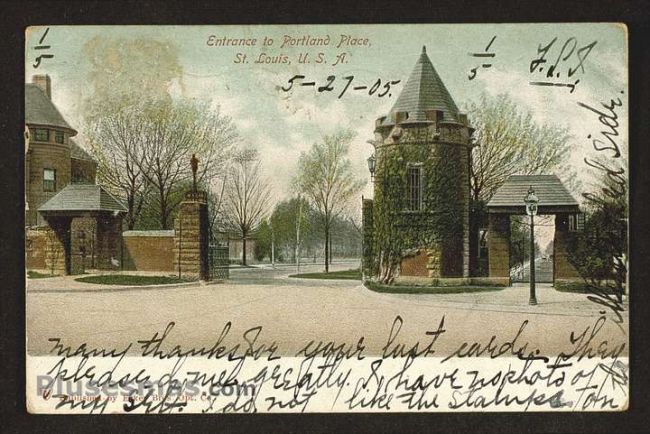 Entrance to Portland Place,
St. Louis, U. S. A.
5-27-05.
1/5
1/5
many thanks for your last cards. They
pleased me greatly. I have no photos of
my
I do not like the stamps on
side.
Pluscopias.com
Published by